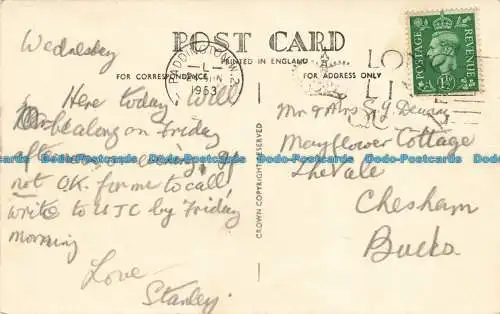 POST CARD
PRINTED IN ENGLAND
FOR CORRESPONDENCE
FOR ADDRESS ONLY
PADDINGTON W.2
1953
LO
LI
POSTAGE
REVENUE
1½D
Wednesday
Here today Will
be along on Friday
afternoon or evening. If
not O.K. for me to call,
write to UTC by Friday
morning
Love
Stanley.
CROWN COPYRIGHT RESERVED
Mr & Mrs S.G
Mayflower Cottage
The Vale
Chesham
Bucks
Dodo-Postcards Dodo-Postcards Dodo-Postcards Dodo-Postcards Dodo-Postcards Dodo-Postcards